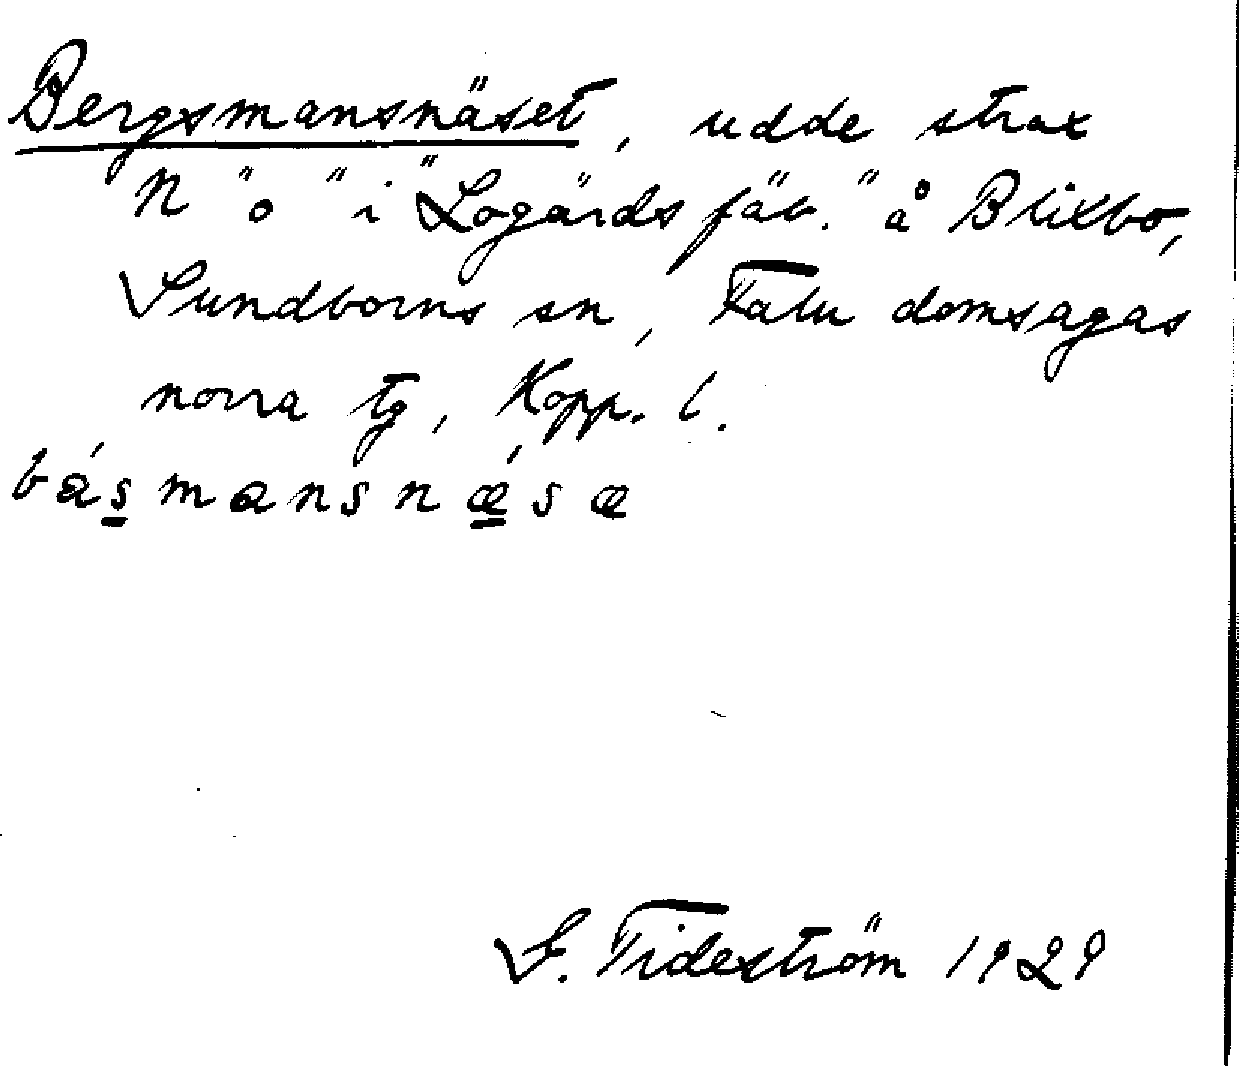 Bergsmansnäset, udde strax
N "o" i "Logärds fäb." å Blixbo,
Sundborns sn, Falu domsagas
norra tg, Kopp. l.
básmansnǽsæ
S. Tideström 1929